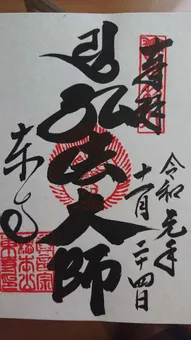 奉拝
令和元年
十一月二十四日
弘法大師
東寺